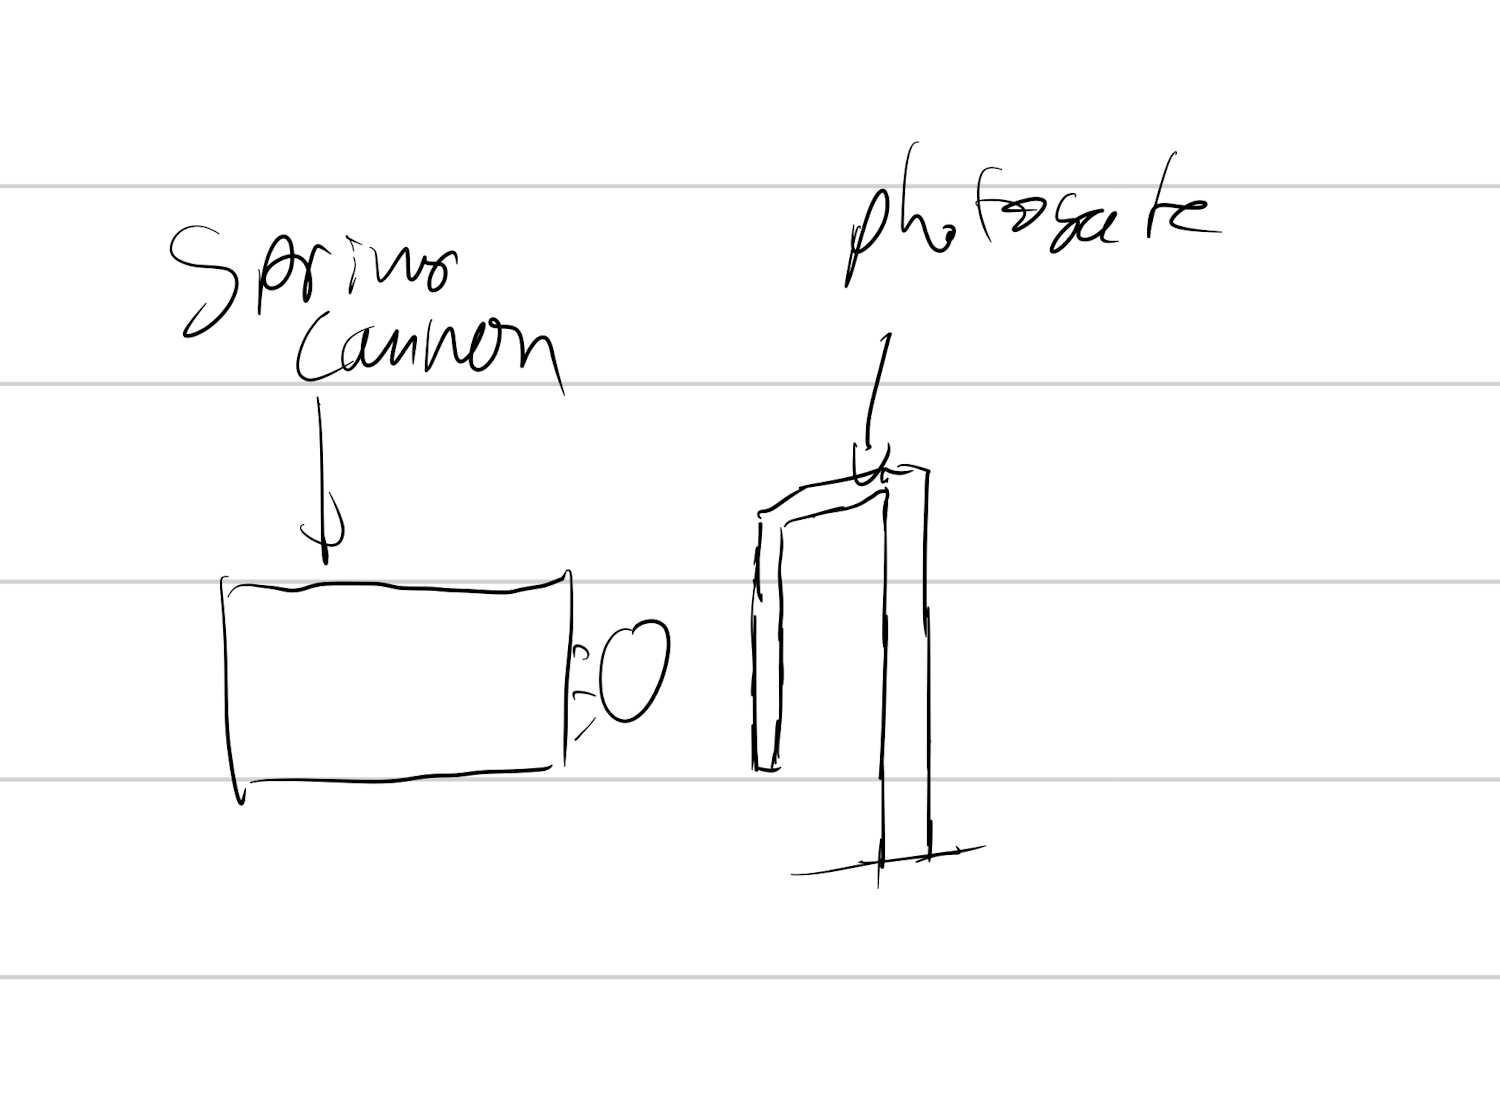 Spring
Cannon
photogate